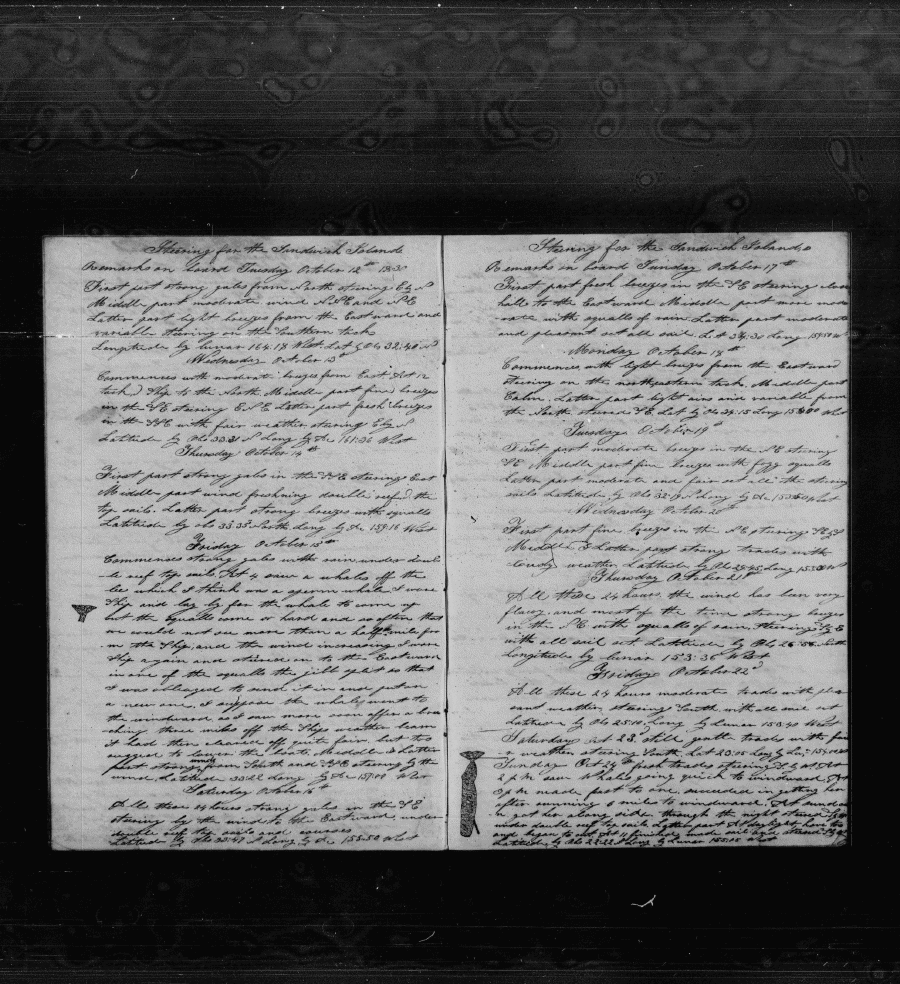 Steering for the Sandwich Islands
Remarks on board Tuesday October 12th 1830
First part strong gales from North steering E by S
Middle part moderate wind NNE and NE
Latter part light breezes from the Eastward and
variable steering on the Southern tack
Longitude by lunar 164.18 West Lat by Obs 32:40 N
Wednesday October 13th
Commences with moderate breezes from East At 12
tack Ship to the North Middle part fine breezes
in the SE steering E Latter part fresh breezes
in the SSE with fair weather steering E by S
Latitude by Obs 33.21 N Long by 161:36 West
Thursday October 14th
First part strong gales in the SSE steering East
Middle part wind freshning double reefd the
top sails. Latter part strong breezes with squalls
Latitude by Obs 33.35 North Long by 159.16 West
Friday October 15th
Commences strong gales with rain under doub
-le reef top sails. At 4 saw a whale off the
lee which I think was a sperm whale. I wore
Ship and lay by for the whale to come up
but the squalls come on hard and so often that
we could not see more than a half mile from
the Ship, and the wind increasing I wore
Ship again and steered on to the Eastward
in one of the squalls the jibb split so that
I was obliaged to send it in and put on
a new one. I suppose the whale went to
the windward as I saw
ching three miles off the Ships weather beam
it had then cleared off quite fair but too
rugged to lower the boats. Middle & Latter
part strong winds from South and SSE steering by the
wind. Latitude 33.22 Long by 157:00 West
Saturday October 16th
All these 24 hours strong gales in the SE
steering by the wind to the Eastward under
double reef top sails and courses
Latitude by Obs 32:47 N Long by 155:50 West
Steering for the Sandwich Islands
Remarks on board Sunday October 17th
First part fresh breezes in the SE steering close
hall to the Eastward Middle part more mode
rate with squalls of rain Latter part moderate
and pleasant set all sail. Lat 34:30 Long
Monday October 18th
Commences with light breezes from the Eastward
steering on the northeastern tack. Middle part
Calm. Latter part light airs and variable from
the South steered SE. Lat by Obs 34:15 Long West
Tuesday October 19th
First part moderate breezes in the NE steering
SE Middle part fine breezes with foggy squalls
Latter part moderate and fair set all the steering
sails Latitude by Obs 32 N Long by West
Wednesday October 20th
First part fine breezes in the NE steering
Middle & Latter part strong trades with
cloudy weather Latitude by Obs Long
Thursday October 21st
All these 24 hours the wind has been very
flawy, and most of the time strong breezes
in the NE with squalls of rain. Steering S by E
with all sail set. Lattitude by Obs 26:56 North
Longitude by lunar 153:36 West
Friday October 22d
All these 24 hours moderate trades with plea
sant weather, steering South, with all sail set
Latitude by Obs 25:10. Long by lunar 153:40 West
Saturday Oct 23d still gentle trades with fai
r weather steering South Lat 23:05 Long by
Sunday Oct 24th fresh trades steering At
2 p.m. saw Whales going quick to windward. At
3 p.m. made fast to one, succeeded in getting him
after running 6 miles to windward. At sundo
n got her along side through the night steered
under double reef top sails Latter part At daylight
and began to cut At 11 finished made sail and steered
Latitude by Obs 22:22 N Long by Lunar 155:05 West